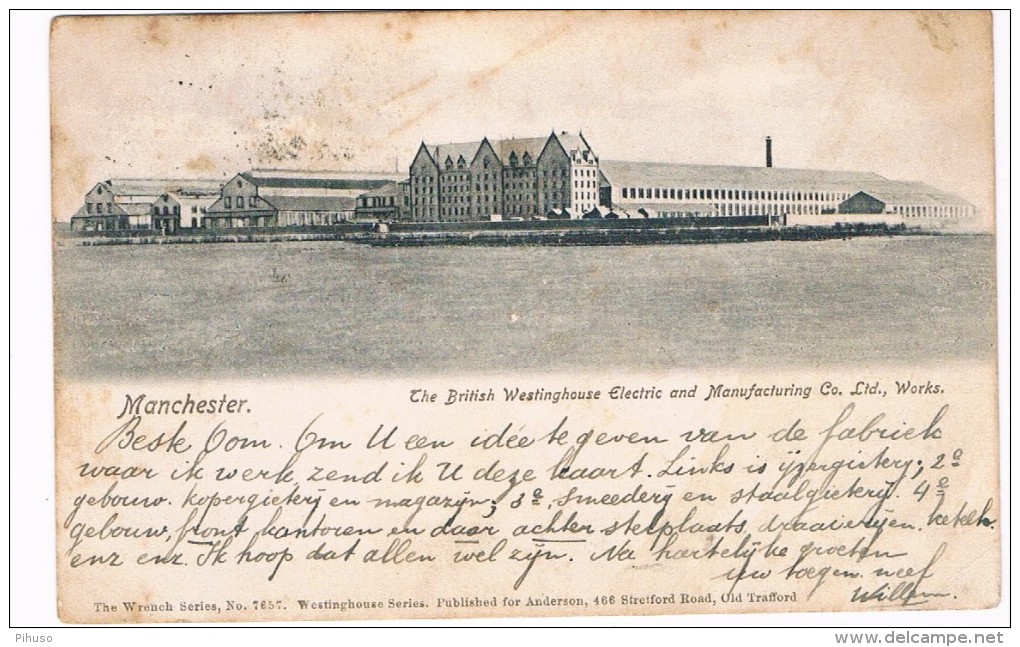 Manchester.
The British Westinghouse Electric and Manufacturing Co. Ltd., Works.
Beste Oom. Om U een idée te geven van de fabriek
waar ik werk, zend ik U deze kaart. Links is ijzergieterij; 2e
gebouw. Kopergieterij en magazijn; 3e, smeederij en staalgieterij. 4e
gebouw, front kantoren en daar achter stelplaats, draaierijen.
enz enz. Ik hoop dat allen wel zijn. Na hartelijke groeten
uw toegen. neef
Willem.
The Wrench Series, No. 7657. Westinghouse Series. Published for Anderson, 466 Stretford Road, Old Trafford
Pihuso
www.delcampe.net